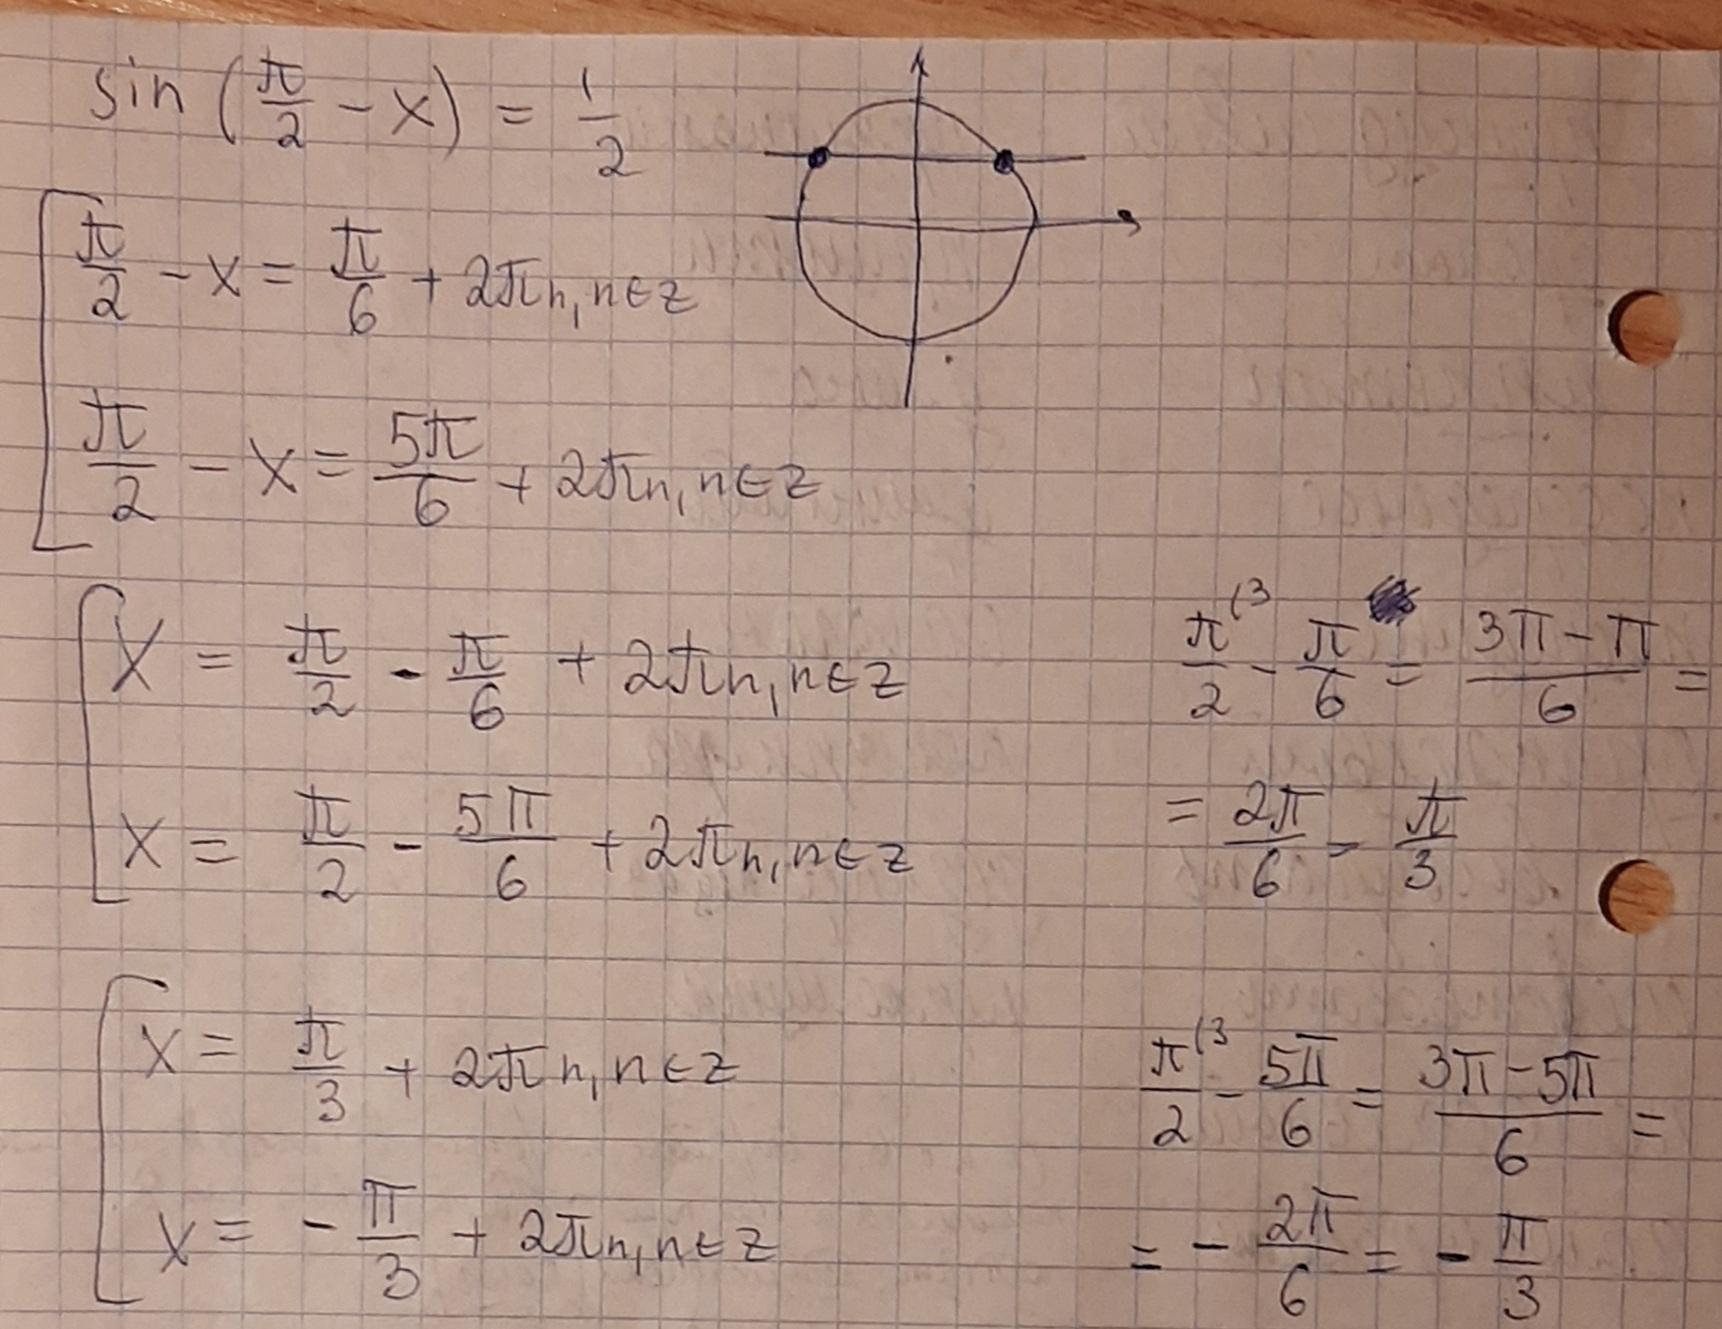 sin (π/2 - x) = 1/2
π/2 - x = π/6 + 2πn, n∈z
π/2 - x = 5π/6 + 2πn, n∈z
x = π/2 - π/6 + 2πn, n∈z
x = π/2 - 5π/6 + 2πn, n∈z
π/2 (3 - π/6 = (3π - π)/6 =
= 2π/6 = π/3
x = π/3 + 2πn, n∈z
x = - π/3 + 2πn, n∈z
π/2 (3 - 5π/6 = (3π - 5π)/6 =
= - 2π/6 = - π/3